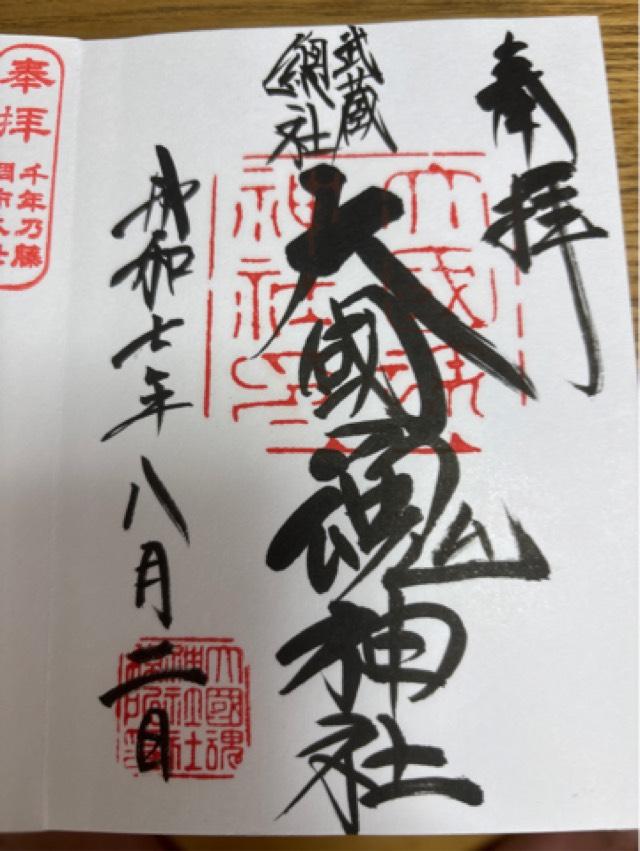 奉拝
武蔵
總社
大國魂神社
令和七年八月二日
大國魂
神社
奉拝
千年乃藤